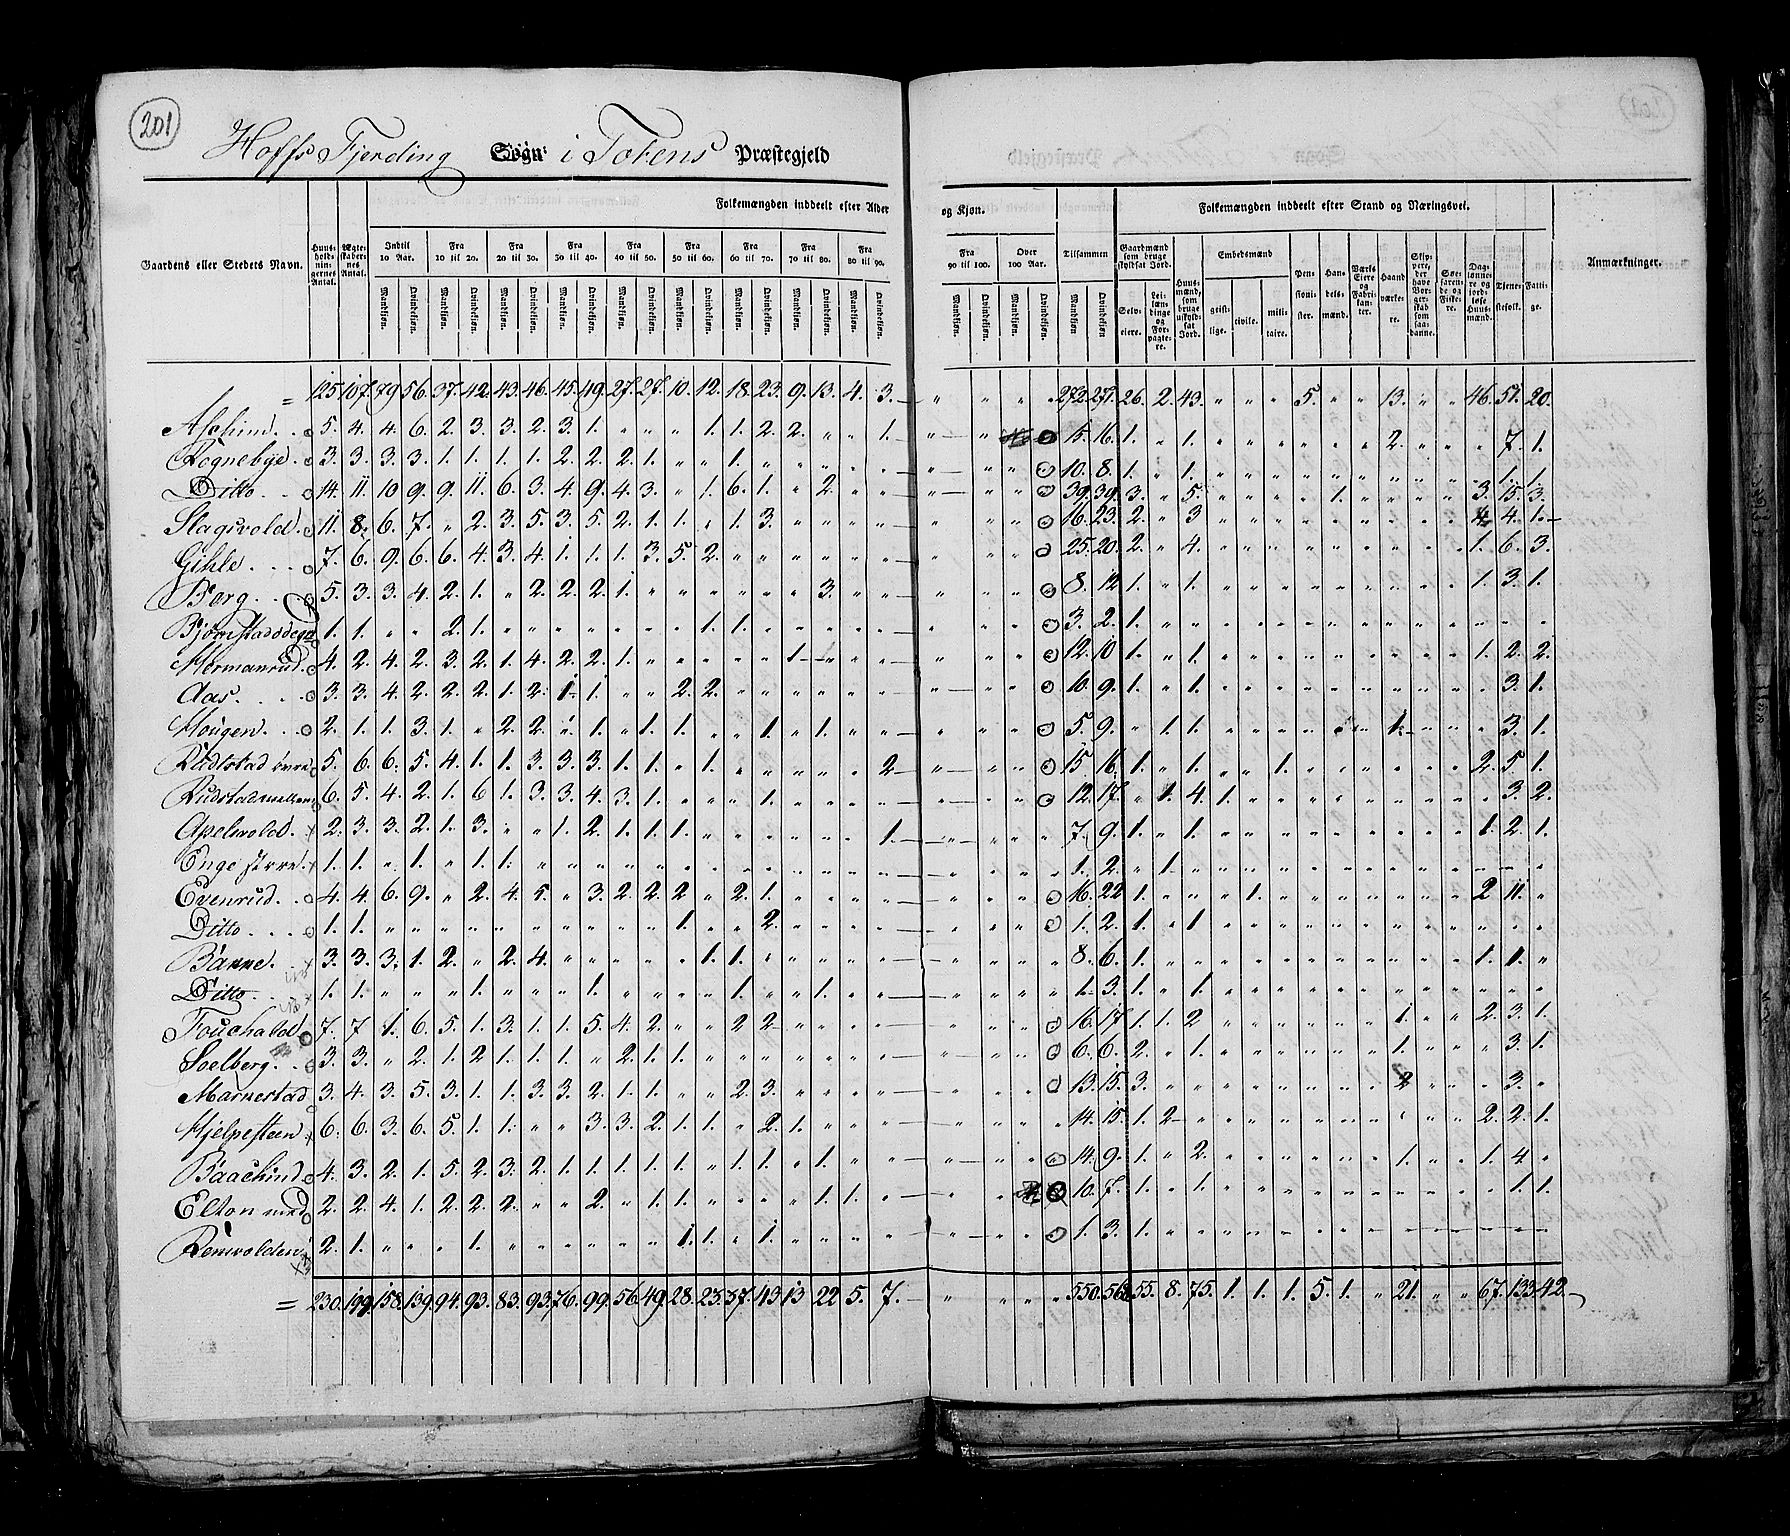 201
Hoffs Fjerding Sogn i Totens Præstegjeld
Gaardens eller Stedets Navn. | Huusholdningernes Antal. | Ægteskabernes Antal. | Folkemængden inddeelt efter Alder og Kjøn. | Folkemængden inddeelt efter Stand og Næringsvei. | Anmærkninger.
Indtil 10 Aar. | Fra 10 til 20. | Fra 20 til 30. | Fra 30 til 40. | Fra 40 til 50. | Fra 50 til 60. | Fra 60 til 70. | Fra 70 til 80. | Fra 80 til 90. | Fra 90 til 100. | Over 100 Aar. | Tilsammen | Gaardmænd som bruge skyldsat Jord. | Huusmænd, som bruge uskyldsat Jord. | Embedsmænd | Pensionister. | Handelsmænd. | Værks Eiere og Fabrikanter. | Haandværkere. | Skippere, der have Borgerskab som saadanne. | Søefarende og Fiskere. | Daglønnere og jordløse Huusmænd. | Tjenestefolk. | Fattige.
Mandkjøn. Qvindekjøn. | Selveiere. | Leilændinge og Forpagtere. | geistlige. | civile. | militaire.
= 125. 107. 79. 56. 37. 42. 43. 46. 45. 49. 27. 27. 10. 12. 18. 23. 9. 13. 4. 3. — " " " " 272. 277. 26. 2. 43. " " " 5. " " 13. " " 46. 51. 20.
Aschim 5. 4. 4. 6. 2. 3. 3. 2. 3. 1. " " " 1. 1. 2. 2. " " 1. 15. 16. 1. " 1. " " " " " " 2. " " " 7. 1.
Rognebye 3. 3. 3. 3. 1. 1. 1. 1. 2. 2. 2. 1. " " 1. " " " " " 10. 8. 1. " 1. " " " " " " " " " " 1. 1.
Ditto 14. 11. 10. 9. 9. 11. 6. 3. 4. 9. 4. 3. " 1. 6. 1. " 2. " " 39. 39. 3. " 5. " " " " 1. " " " " 3. 15. 3.
Slagsvold 11. 8. 6. 7. " 2. 3. 5. 3. 5. 2. 1. 1. " 1. 3. " " " " 16. 23. 2. " 3 " " " " " " " " " 4 4. 1.
Gihle 7. 6. 9. 6. 6. 4. 3. 4. 1. 1. 1. 3. 5. 2. " " " " " " 25. 20. 2. " 4. " " " " " " " " " 1. 6. 3.
Berg 5. 3. 3. 4. 2. 1. " 2. 2. 2. 1. " " " " " " 3. " " 8. 12 1. " 1. " " " " " " " " " 1. 3. 1.
1. 1. " " 2. 1. " " " " " " " 1. 1. " " " " " 3. 2. 1. " " " " " " " " " " " " " "
Hermanrud 4. 2. 4. 2. 3. 2. 1. 4. 2. 2. 1. " " " " " 1. " " " 12. 10 1. " 1. " " " " " " " " " 1. 2. 2.
Aas 3. 3. 4. 2. 2. 2. 1. 2. 1. 1. " " 2. 2. " " " " " " 10. 9. 1. " 1. " " " " " " " " " " 3. 1.
Hougen 2. 1. 1. 3. 1. " 2. 2. " 1. " 1. 1. " " 1. " 1. " " 5. 9. " 1. 1. " " " " " " 1. " " " 3. 1.
5. 6. 6. 5. 4. 1. 1. 3. 3. 3. 1. 1. " 1. " " " " " 2 15 16. 1. " 1. " " 1. " " " " " " 2. 5. 1.
6. 5. 4. 2. 1. 6 1. 3. 3. 4. 3. 1. " " " 1. " " " " 12. 17. " 1. 4. 1. " " " " " " " " " 3. 2.
Apelsvold 2. 3. 3. 2. 1. 3. " " 1. 2. 1. 1. 1. " " " " " " 1. 7. 9. 1. " 1. " " " " " " " " " 1. 2. 1.
Enge 1. 1. " 1. " 1. 1. " " " " " " " " " " " " " 1. 2. " 1. " " " " " " " " " " " " "
Evenrud 4. 4. 6. 9. " 2. 4. 5. " 3. 2. 2. 2 " 2. 1. " " " " 16. 22 1. " " " 1. " " " " " " " 2 11. "
Ditto 1. 1. " " " " " " " " " " 1. " " 2. " " " " 1. 2. 1. " 1. " " " " " " " " " " " "
3. 3. 3. 1. 2. " 2. 4. " " " " " 1. 1. " " " " " 8. 6. 1. " " " " " " " " " " " 1. 1. "
Ditto 1. 1. " " " 1. " " " 1. " " " " 1. " " 1. " " 1. 3. 1. " 1. " " " " " " " " " " " "
7. 7 1. 6. 5. 1. 3. 1. 1. 5. 4. 2. " " 2 2 " " " " 16. 17. 1. 1. 2 " " " " " " 1. " " 2. 3. 1.
Soelberg 3. 3. " 2. 1. 2 1. 1. 1. " 2. 1. 1. " " " " " " " 6. 6. 2. " 1. " " " " " " 1. " " " 3. 1.
Marnerstad 3. 4. 3. 5. 3. 1. 1. 3. 3. 2. 1. 1. " " 2. 3. " " " " 13. 15. 3. " " " " " " " " 2 " " " 3. "
Hjelpesteen 6. 6. 3. 6. 5. 1. 1. " " 3. 3. 2. 1. 1. " 2. 1. " " " 14. 15. 1. 2 " " " " " " " " " " 2. 2. 1.
4. 3. 2. 1. 5. 2. 3. 2. 1. 1. 1. 1. 1. " 1. 1. " 1. " " 14. 9. 1. " 2. " " " " " " 1. " " 1. 4. "
Elton 2. 2. 4. 1. 2. 2. 2. " " 2. " 1. 1. " " " " 1. 1. " 10. 7. 1. " 1. " " " " " " " " " " 1. 1.
2. 1. " " " 1. " " " " " " 1. 1. " 1. " " " " 1. 3. 1. " " " " " " " " " " " " " "
= 230. 199. 158. 139. 94. 93. 83. 93. 76. 99. 56. 49. 28. 23. 37. 43 13 22 5. 7. — " " " " 550. 568 55. 8. 75. 1. 1. 1. 5. 1. " 21. " " 67. 133. 42.